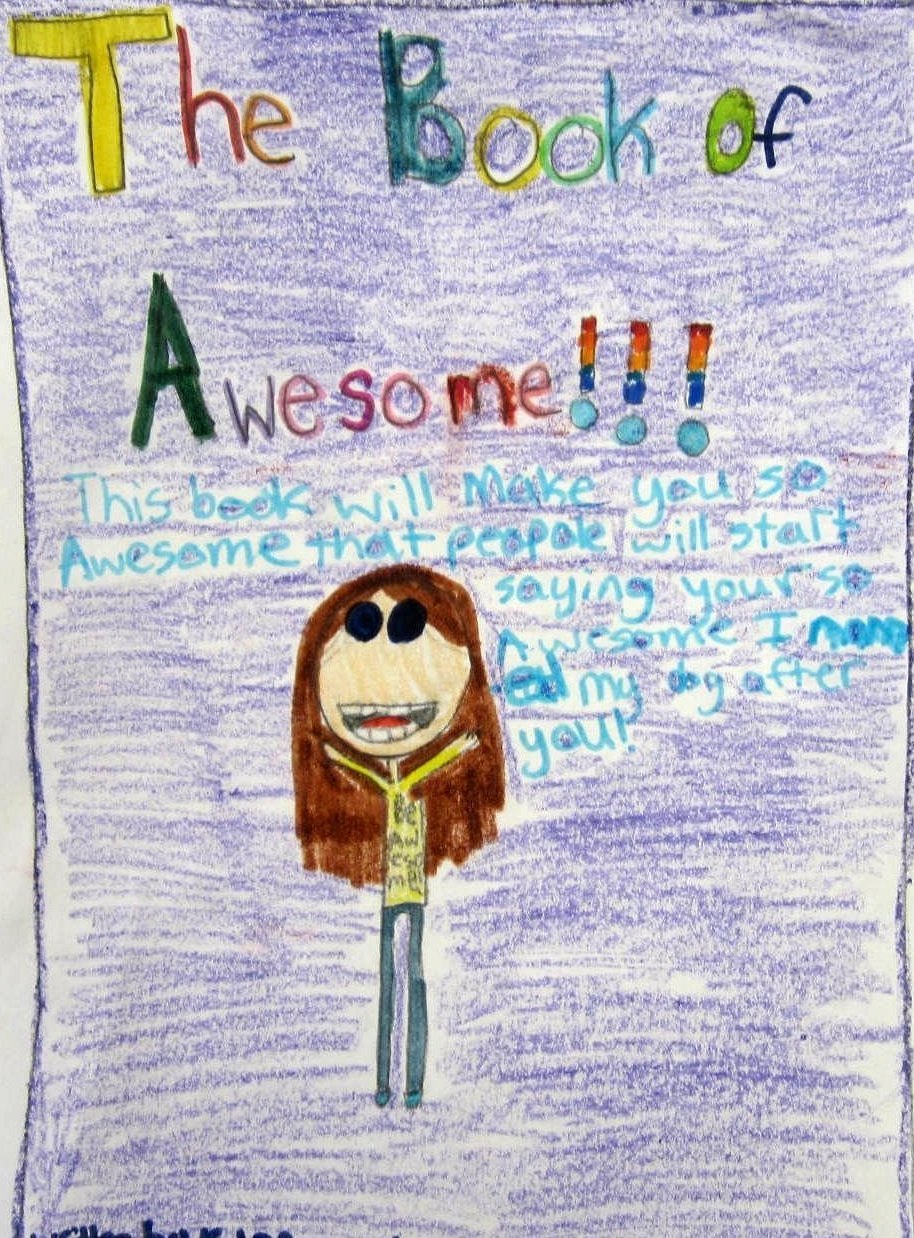 The Book of
Awesome!!!
This book will Make you so
Awesome that peopole will start
saying your so
Awesome I nam
ed my dog after
you!